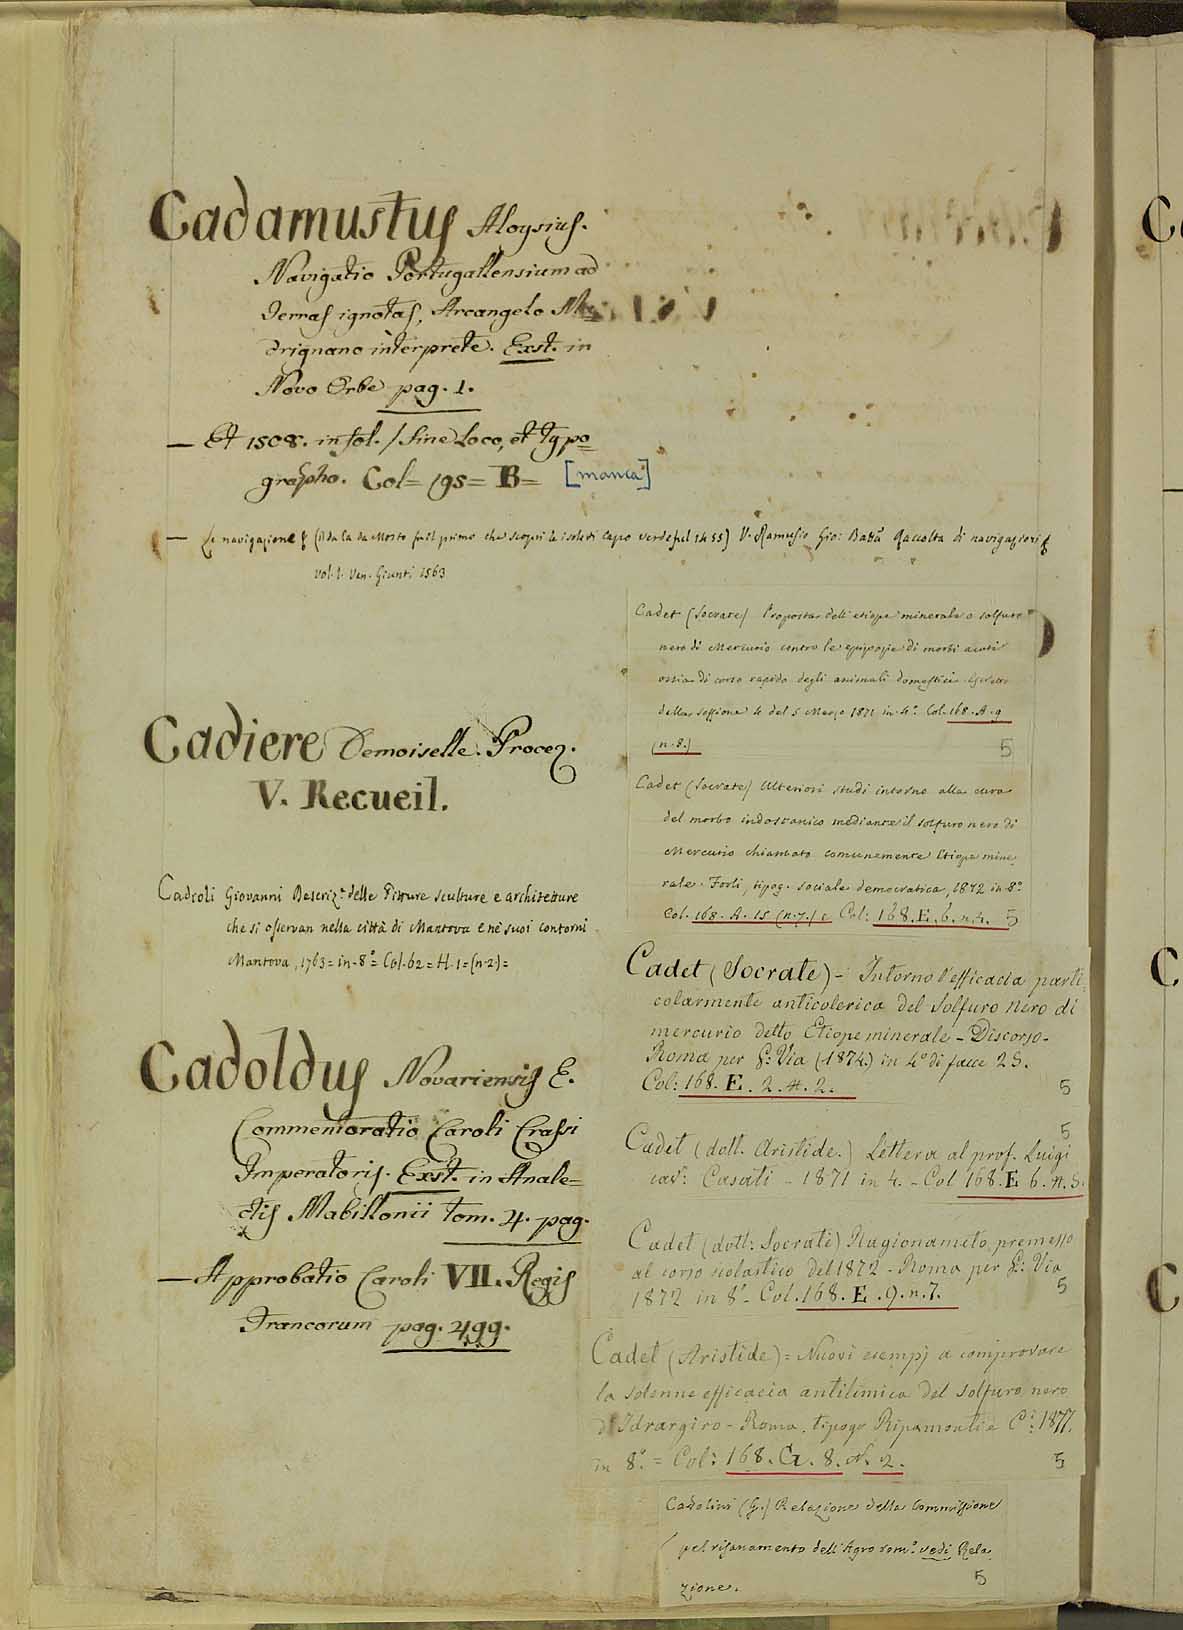 Cadamustus Aloysius.
Navigatio Portugallensium ad
terras ignotas, Arcangelo Ma=
drignano interprete. Exst. in
Novo Orbe pag. 1.
— Et 1508. in fol. / sine Loco, et Typo=
grapho. Col= 95= B= [manca]
— Le navigazione (il da Ca da Mosto fu il primo che scoprì le isole di Capo verde nel 1455) V. Ramusio Gio: Batta Raccolta di navigazioni
vol. 1. Ven. Giunti 1563
Cadiere Demoiselle. Procez.
V. Recueil.
Cadioli Giovanni Descriz.e delle Pitture sculture e architetture
che si osservan nella città di Mantova e ne' suoi contorni
Mantova, 1763= in-8°= Col. 62= H. 1= (n. 2)=
Cadoldus Novariensis E.
Commemoratio Caroli Crassi
Imperatoris. Exst. in Anale=
ctis Mabillonii tom. 4. pag.
— Approbatio Caroli VII. Regis
Francorum pag. 499.
Cadet (Socrate) Proposta dell'etiope minerale o solfuro
nero di Mercurio contro le epizozie di morbi acuti
ossia di corso rapido degli animali domestici.
della sessione 4 del 5 Marzo 1871 in-4°. Col. 168. A. 9
(n. 8.) 5
Cadet (Socrate) Ulteriori studi intorno alla cura
del morbo indostanico mediante il solfuro nero di
Mercurio chiamato comunemente Etiope mine
rale. Forlì, tipog. sociale democratica, 1872 in-8°
Col. 168. A. 15 (n. 7.) e Col: 168. E. 6. n. 4. 5
Cadet (Socrate) - Intorno l'efficacia parti
colarmente anticolerica del Solfuro nero di
mercurio detto Etiope minerale - Discorso -
Roma per S: Via (1874.) in 4° di facce 25.
Col: 168. E. 2. n. 2. 5
5
Cadet (dott. Aristide.) Lettera al prof. Luigi
cav: Casati - 1871 in 4. - Col 168. E 6. n. 5.
Cadet (dott: Socrate) Ragionameto, premesso
al corso scolastico del 1872 - Roma per S: Via
1872 in 8° - Col. 168. E. 9. n. 7. 5
Cadet (Aristide) = Nuovi esempj a comprovare
la solenne efficacia antilimica del solfuro nero
d'Idrargiro - Roma, tipogr Ripamonti e C.i 1877.
in 8°. = Col: 168. G. 8. N. 2. 5
Cadolini (G.) Relazione della Commissione
pel risanamento dell'Agro rom.° vedi Rela
zione. 5